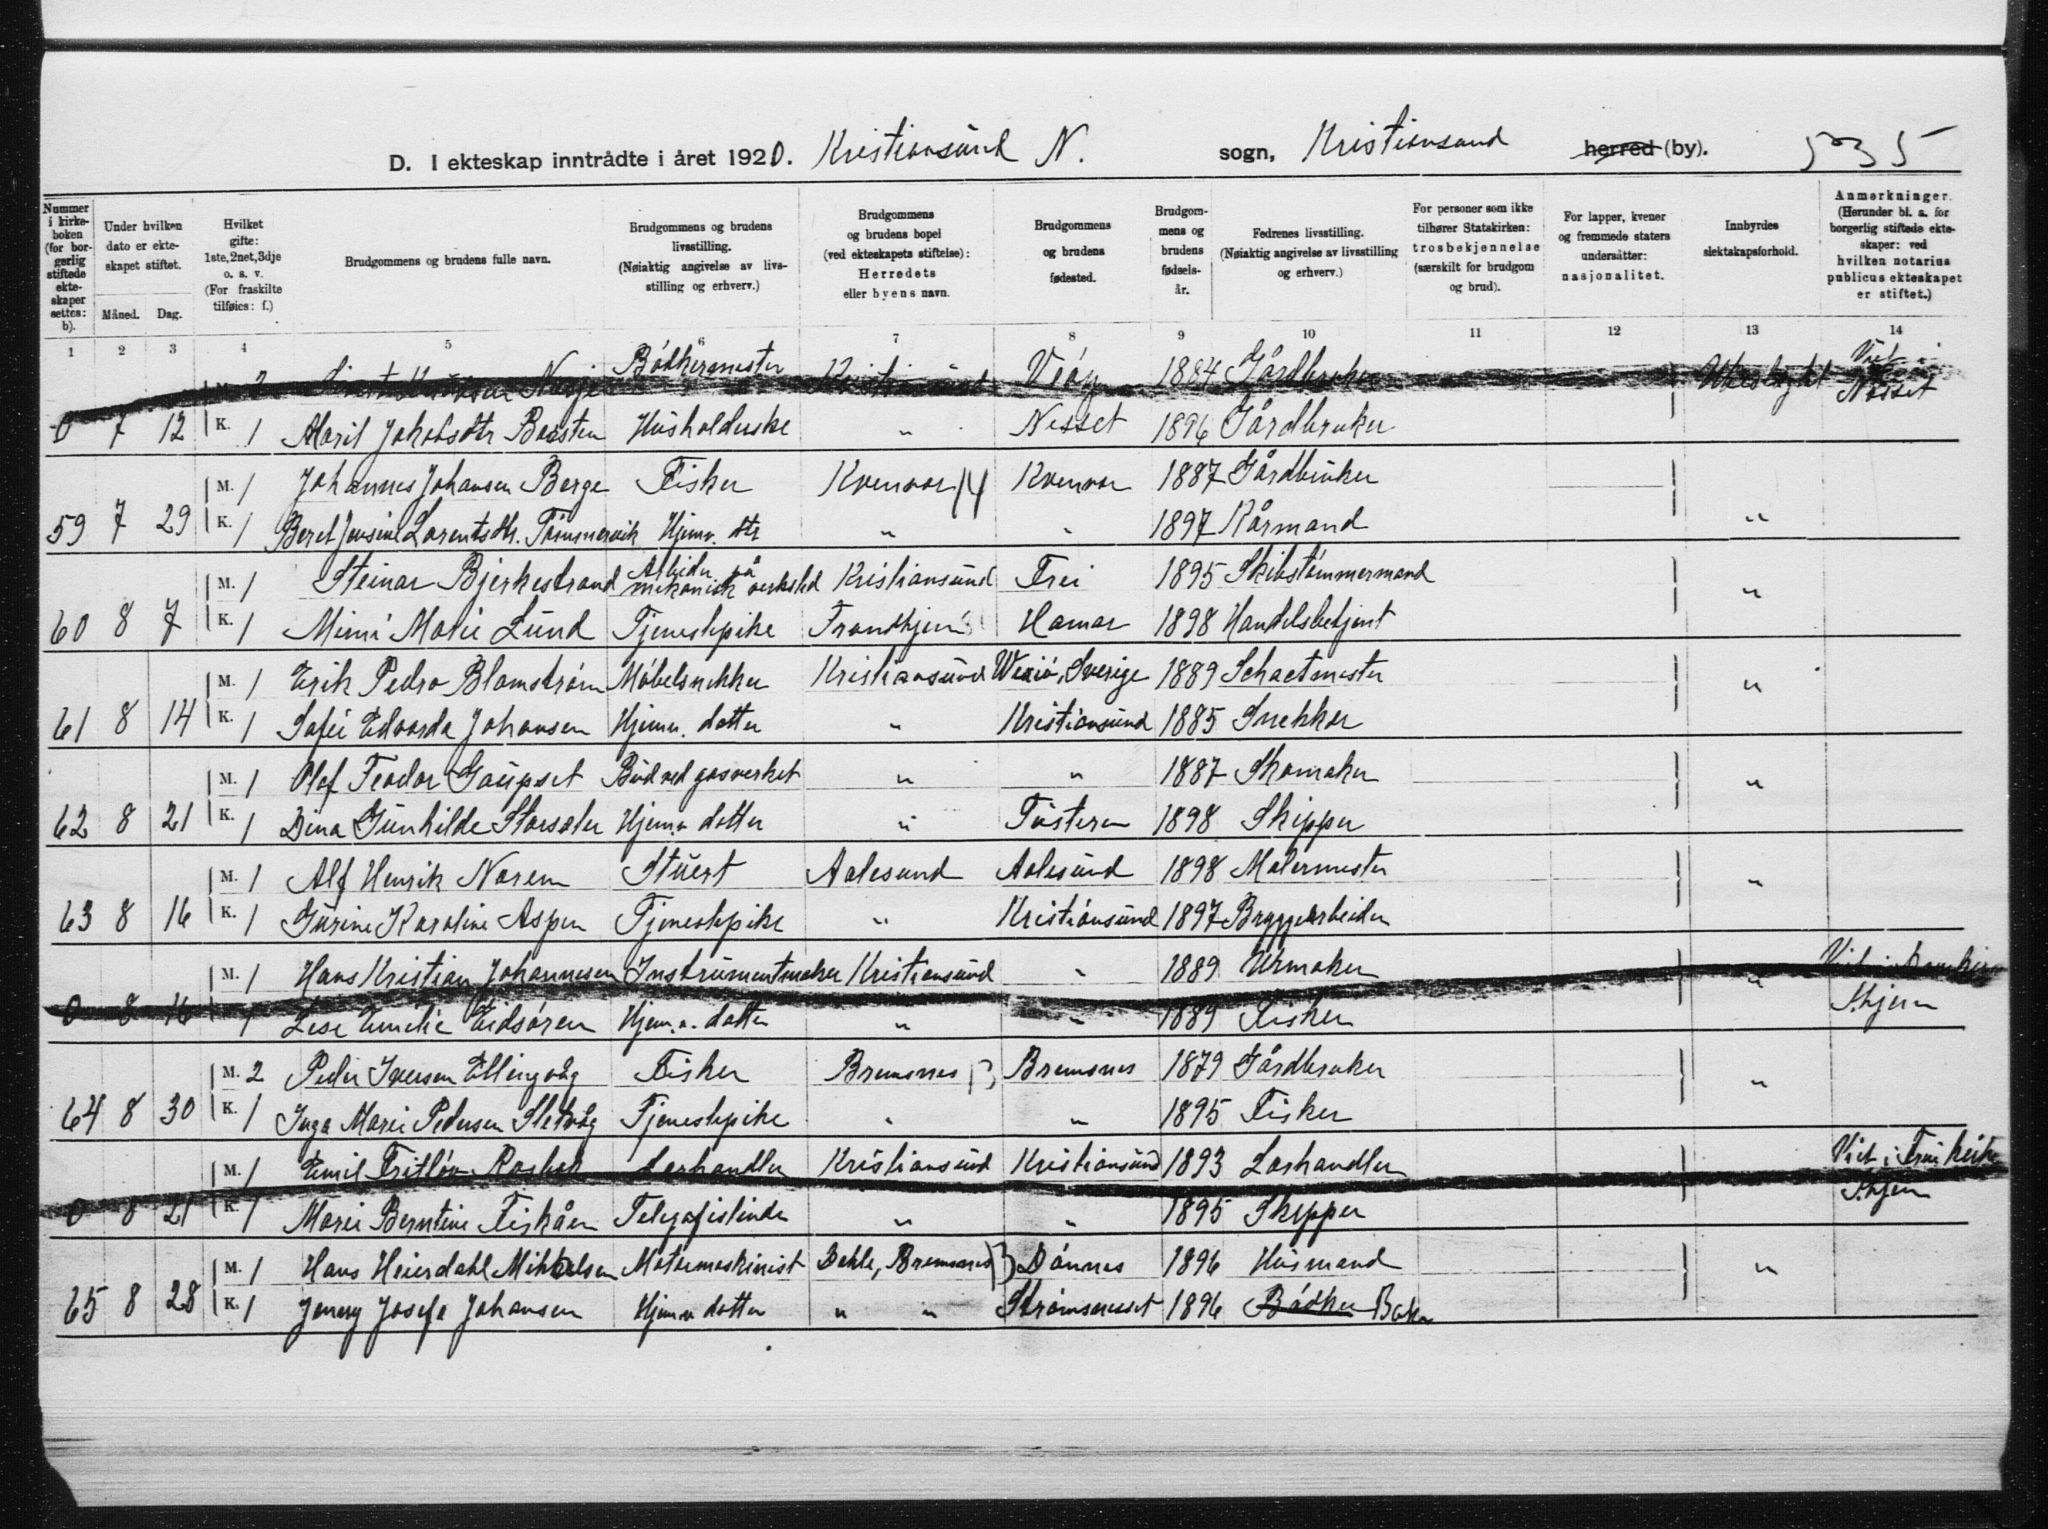 D. I ekteskap inntrådte i året 1920. Kristiansund N. sogn, Kristiansund herred (by). 535
Nummer i kirkeboken (for borgerlig stiftede ekteskaper settes: b).
Under hvilken dato er ekteskapet stiftet.
Måned. Dag.
Hvilket gifte: 1ste, 2net, 3dje o. s. v. (For fraskilte tilføies: f.)
Brudgommens og brudens fulle navn.
Brudgommens og brudens livsstilling. (Nøiaktig angivelse av livsstilling og erhverv.)
Brudgommens og brudens bopel (ved ekteskapets stiftelse): Herredets eller byens navn.
Brudgommens og brudens fødested.
Brudgommens og brudens fødselsår.
Fedrenes livsstilling. (Nøiaktig angivelse av livsstilling og erhverv.)
For personer som ikke tilhører Statskirken: trosbekjennelse (særskilt for brudgom og brud).
For lapper, kvener og fremmede staters undersåtter: nasjonalitet.
Innbyrdes slektskapsforhold.
Anmerkninger. (Herunder bl. a. for borgerlig stiftede ekteskaper: ved hvilken notarius publicus ekteskapet er stiftet.)
1 2 3 4 5 6 7 8 9 10 11 12 13 14
M. 2 Bödkermester Kristiansund Veöy 1884 Gårdbruker Ubeslegtet Viet i Nesset
0 7 12 K. 1 Marit Jakobsdtr Husholderske " Nesset 1896 Gårdbruker
M. 1 Johannes Johansen Berge Fisker Kvenvær Kvenvær 1887 Gårdbruker
59 7 29 K. 1 Beret Jensine Lorentsdtr. Tömmervik Hjemv. dtr " " 1897 Kårmand "
M. 1 Steinar Bjerkestrand Arbeider på mekanisk verksted Kristiansund Frei 1895 Skibstömmermand
60 8 7 K. 1 Mimi Marie Lund Tjenestepike Trondhjem Hamar 1898 Handelsbetjent "
M. 1 Erik Pedro Blomström Möbelsnekker Kristiansund Wexiö, Sverige 1889 Schactmester
61 8 14 K. 1 Sofie Edvarda Johansen Hjemv. datter " Kristiansund 1885 Snekker "
M. 1 Olof Teodor Gaupset Bud ved gasverket " " 1887 Skomaker
62 8 21 K. 1 Dina Gunhilde Storsæter Hjemv datter " Tusteren 1898 Skipper "
M. 1 Alf Henrik Norem Stuert Aalesund Aalesund 1898 Malermester
63 8 16 K. 1 Gurine Karoline Aspen Tjenestepike " Kristiansund 1897 Bryggearbeider "
M. 1 Hans Kristian Johannesen Instrumentmaker Kristiansund " 1889 Urmaker
0 8 16 1 Lise Emilie Eidsören Hjem.v. datter " " 1889 Fisker " Skjem
M. 2 Peder Iversen Ellingvåg Fisker Bremsnes Bremsnes 1879 Gårdbruker
64 8 30 K. 1 Inga Marie Pedersen Sletvåg Tjenestepike " " 1895 Fisker "
M. 1 Emil Fritlöv Rosbak Lærhandler Kristiansund Kristiansund 1893 Lærhandler Viet i
0 8 21 K. 1 Marie Berntine Fiskåen Telegrafistinde " " 1895 Skipper Skjem
M. 1 Hans Heierdahl Mikkelsen Motormaskinist Dahle, Bremsnes Dönnes 1896 Husmand
65 8 28 K. 1 Jenny Josefa Johansen Hjemv datter " " Strömsnesset 1896 Bödker Baker "